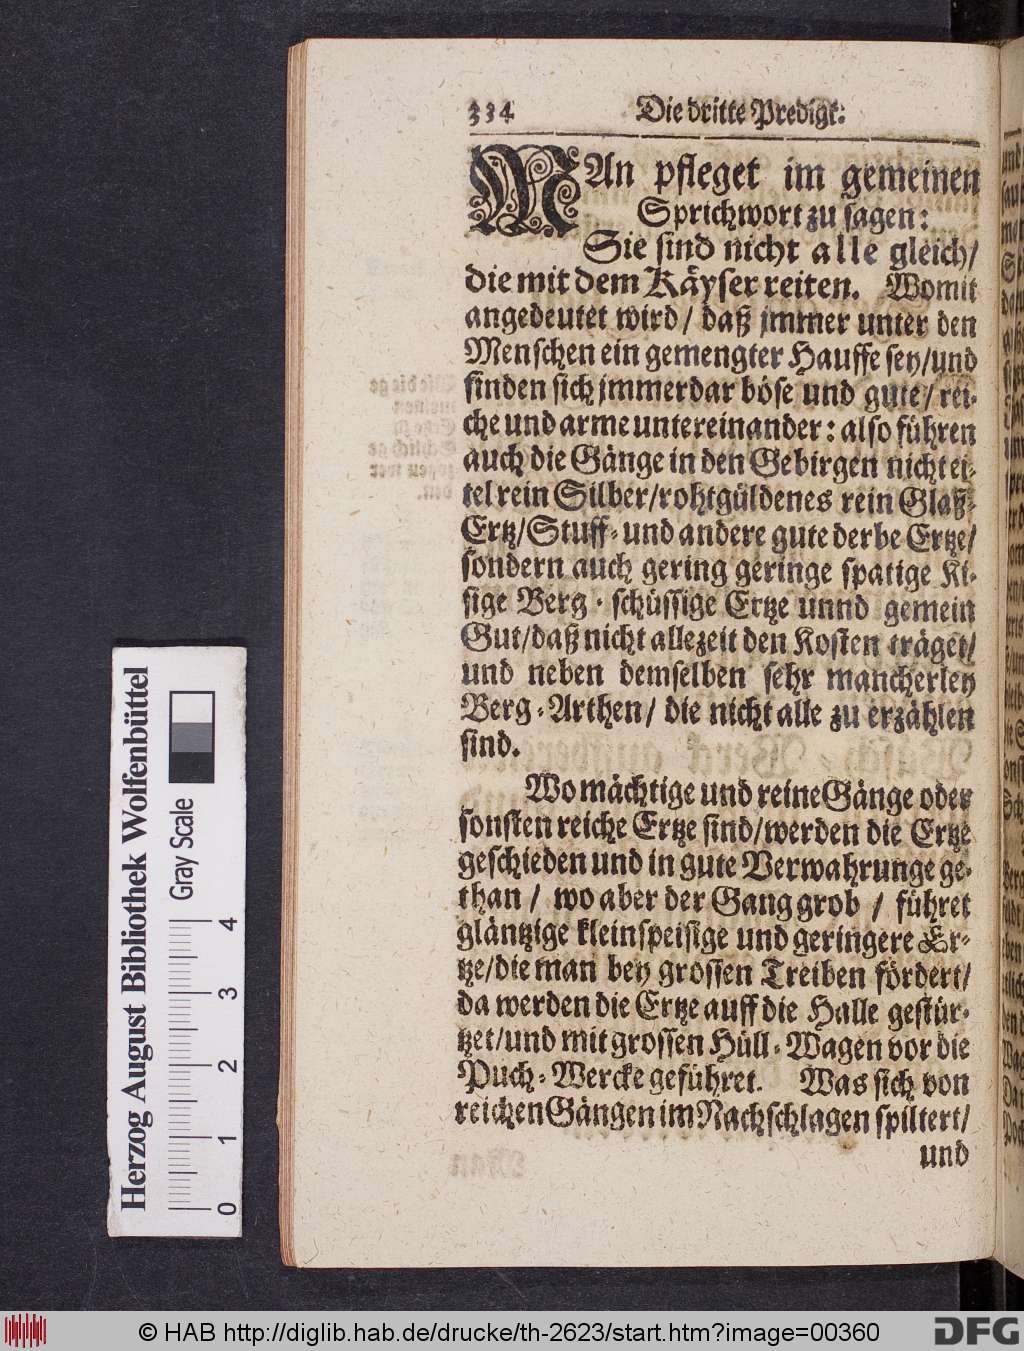 334 Die dritte Predigt:
MAn pfleget im gemeinen
Sprichwort zu sagen:
Sie sind nicht alle gleich/
die mit dem Käyser reiten. Womit
angedeutet wird/ daß jmmer unter den
Menschen ein gemengter Hauffe sey/und
finden sich jmmerdar böse und gute/ rei-
che und arme untereinander: also führen
auch die Gänge in den Gebirgen nicht ei-
tel rein Silber/rohtgüldenes rein Glaß-
Ertz/Stuff- und andere gute derbe Ertze/
sondern auch gering geringe spatige Ki-
sige Berg-schüssige Ertze unnd gemein
Gut/daß nicht allezeit den Kosten träget/
und neben demselben sehr mancherley
Berg-Arthen/ die nicht alle zu erzählen
sind.
Wo mächtige und reine Gänge oder
sonsten reiche Ertze sind/werden die Ertze
geschieden und in gute Verwahrunge ge-
than / wo aber der Gang grob / führet
gläntzige kleinspeisige und geringere Er-
tze/die man bey grossen Treiben fördert/
da werden die Ertze auff die Halle gestür-
tzet/und mit grossen Hüll-Wagen vor die
Puch-Wercke geführet. Was sich von
reichen Gängen im Nachschlagen spiltert/
und
Herzog August Bibliothek Wolfenbüttel
Gray Scale
0 1 2 3 4
© HAB http://diglib.hab.de/drucke/th-2623/start.htm?image=00360
DFG